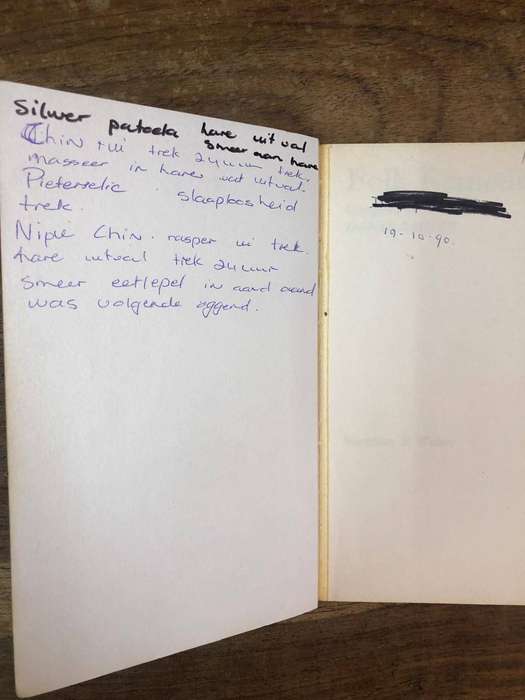 Silwer patoela hare uit val
Smeer aan hare
Chin ui trek 24 uur trek.
masseer in hare wat uitval.
Pieterselie slaaploosheid
trek.
Chin. rasper ui trek.
hare uitval trek 24 uur
smeer eetlepel in aand aand
was volgende oggend.
19-10-90.